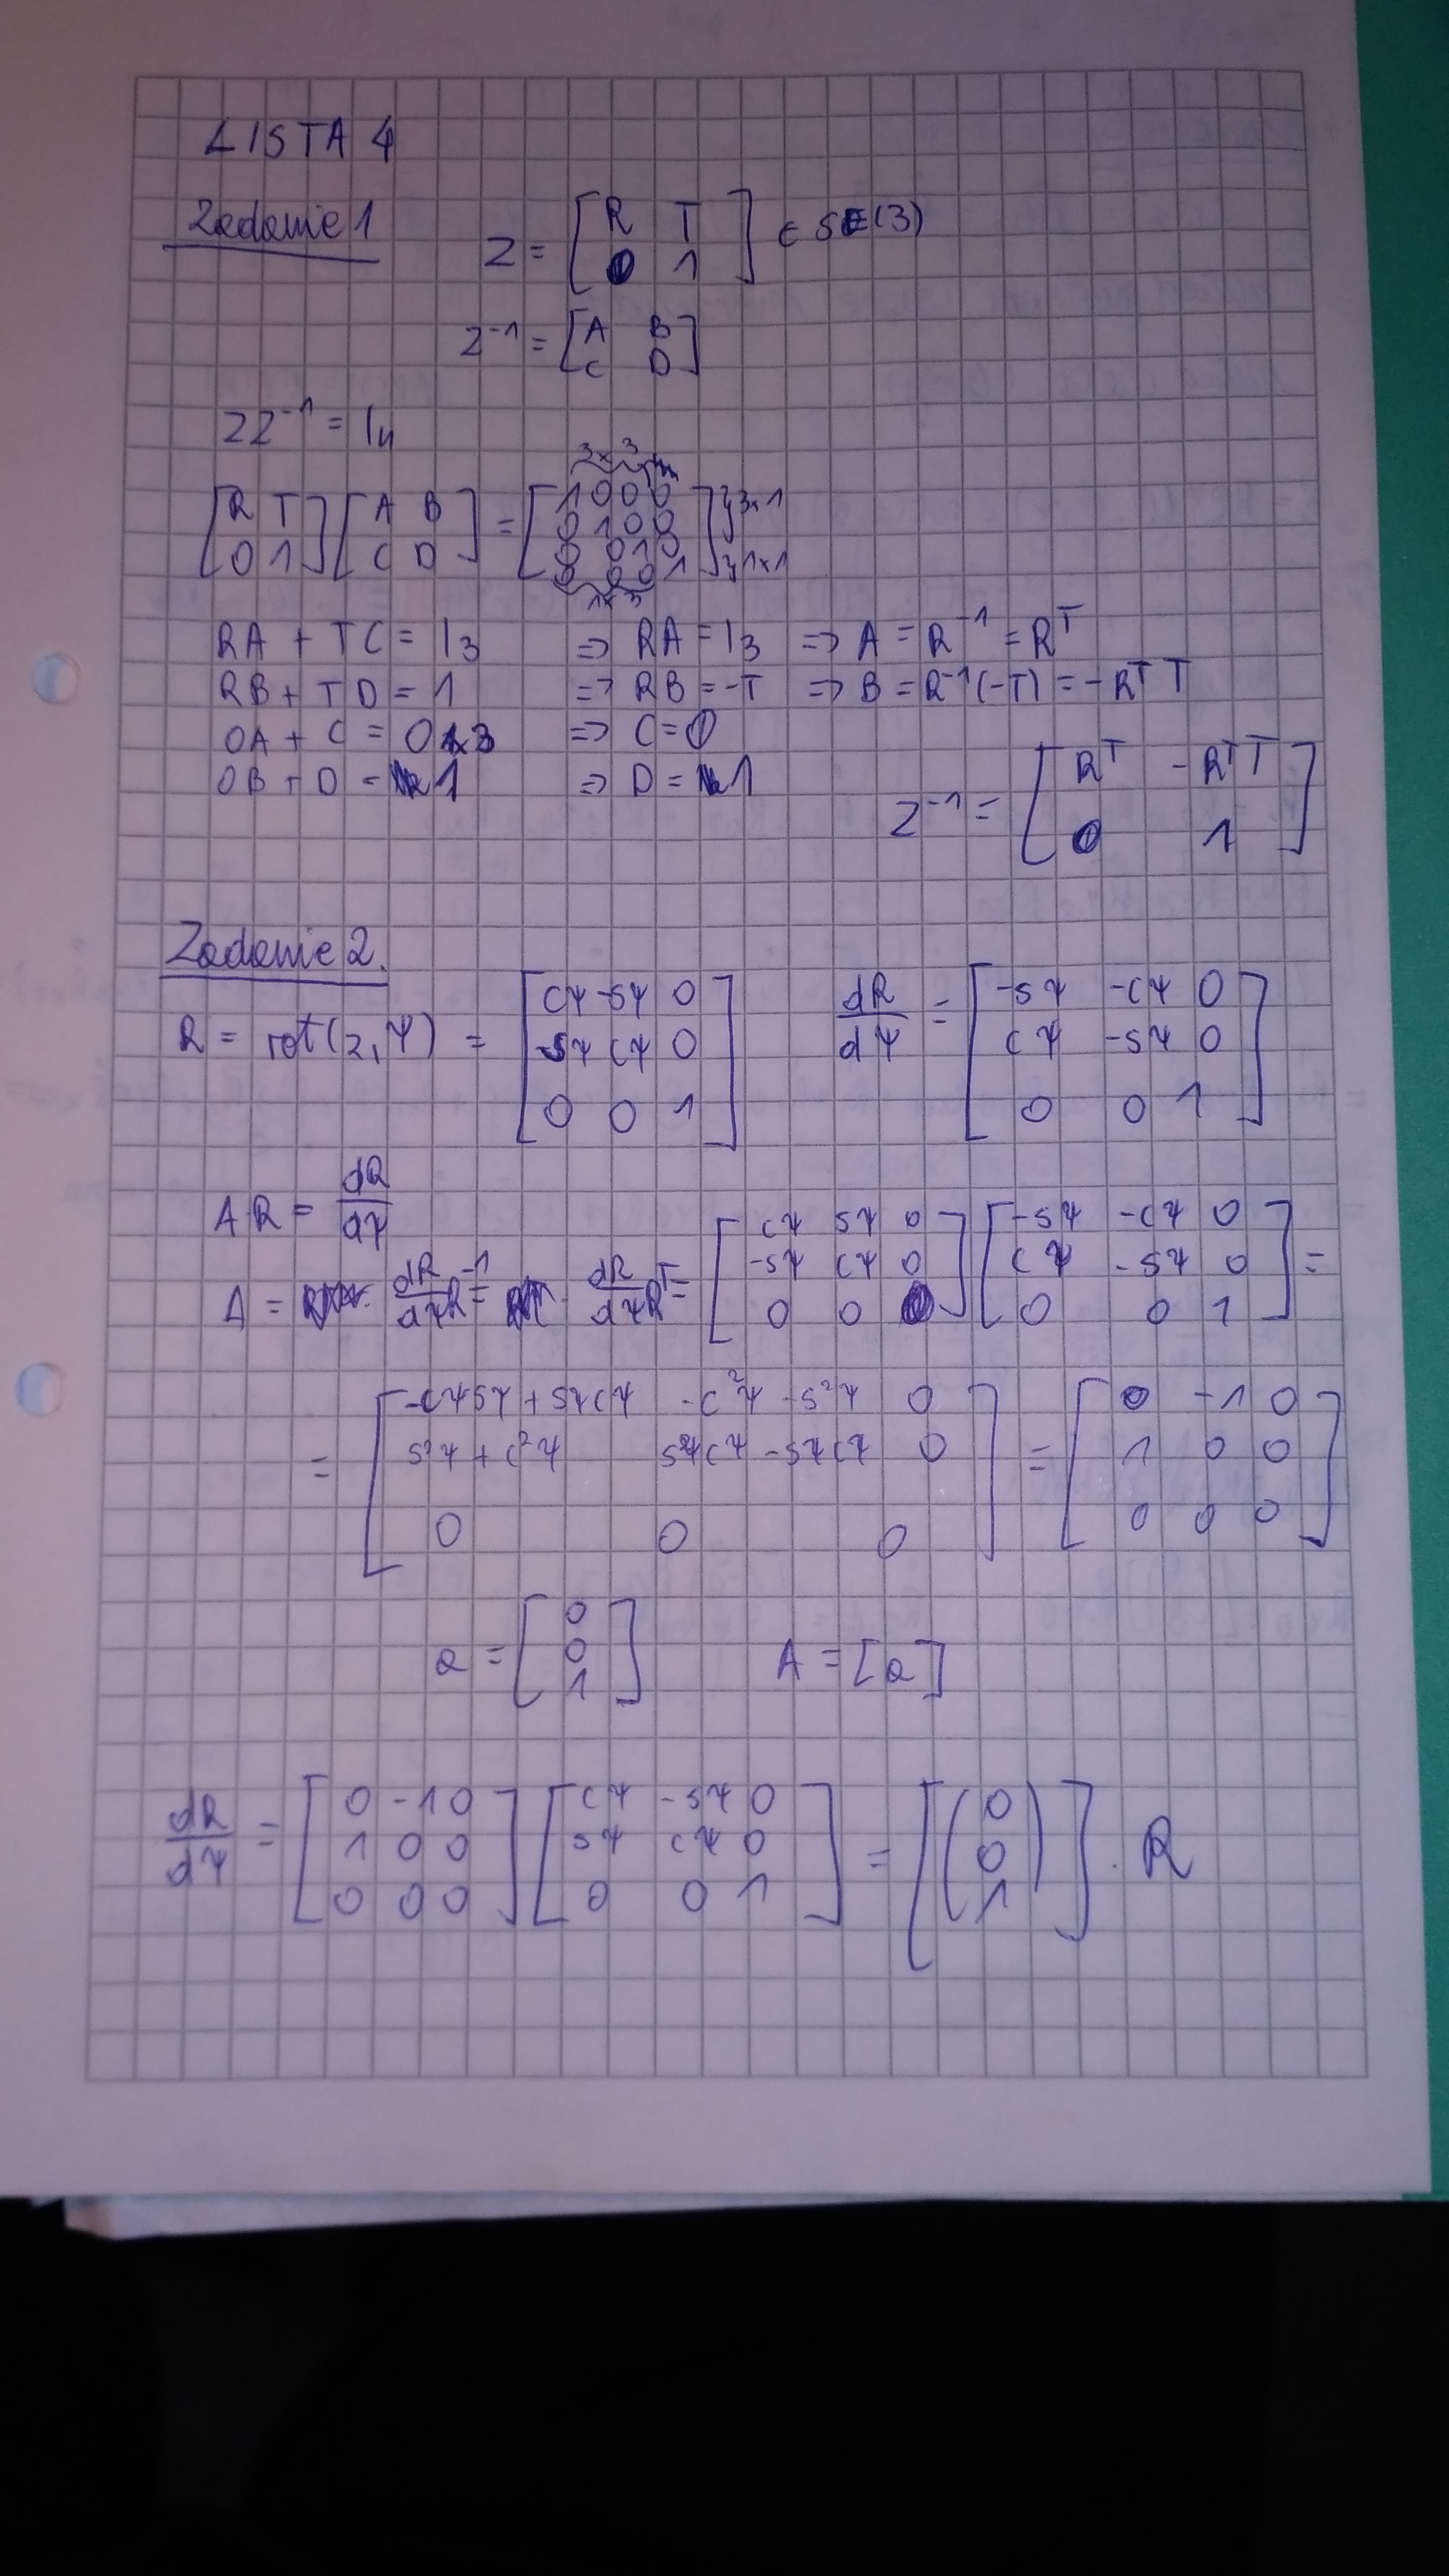 LISTA 4
Zadanie 1
Z = [R T; 0 1] ∈ SE(3)
Z⁻¹ = [A B; C D]
ZZ⁻¹ = I₄
[R T; 0 1] [A B; C D] = [1 0 0 0; 0 1 0 0; 0 0 1 0; 0 0 0 1] 3x3 }3x1 }1x1 1x3
RA + TC = I₃ => RA = I₃ => A = R⁻¹ = Rᵀ
RB + TD = 1 => RB = -T => B = R⁻¹(-T) = -RᵀT
0A + C = 0 1x3 => C = 0
0B + D = 1 => D = 1
Z⁻¹ = [Rᵀ -RᵀT; 0 1]
Zadanie 2.
R = rot(z, ψ) = [cψ -sψ 0; sψ cψ 0; 0 0 1] dR/dψ = [-sψ -cψ 0; cψ -sψ 0; 0 0 1]
AR = dR/dψ
A = dR/dψ R⁻¹ = dR/dψ Rᵀ = [cψ sψ 0; -sψ cψ 0; 0 0 0] [-sψ -cψ 0; cψ -sψ 0; 0 0 1] =
= [-cψsψ + sψcψ -c²ψ - s²ψ 0; s²ψ + c²ψ sψcψ - sψcψ 0; 0 0 0] = [0 -1 0; 1 0 0; 0 0 0]
a = [0; 0; 1] A = [a]
dR/dψ = [0 -1 0; 1 0 0; 0 0 0] [cψ -sψ 0; sψ cψ 0; 0 0 1] = [(0; 0; 1)] · R